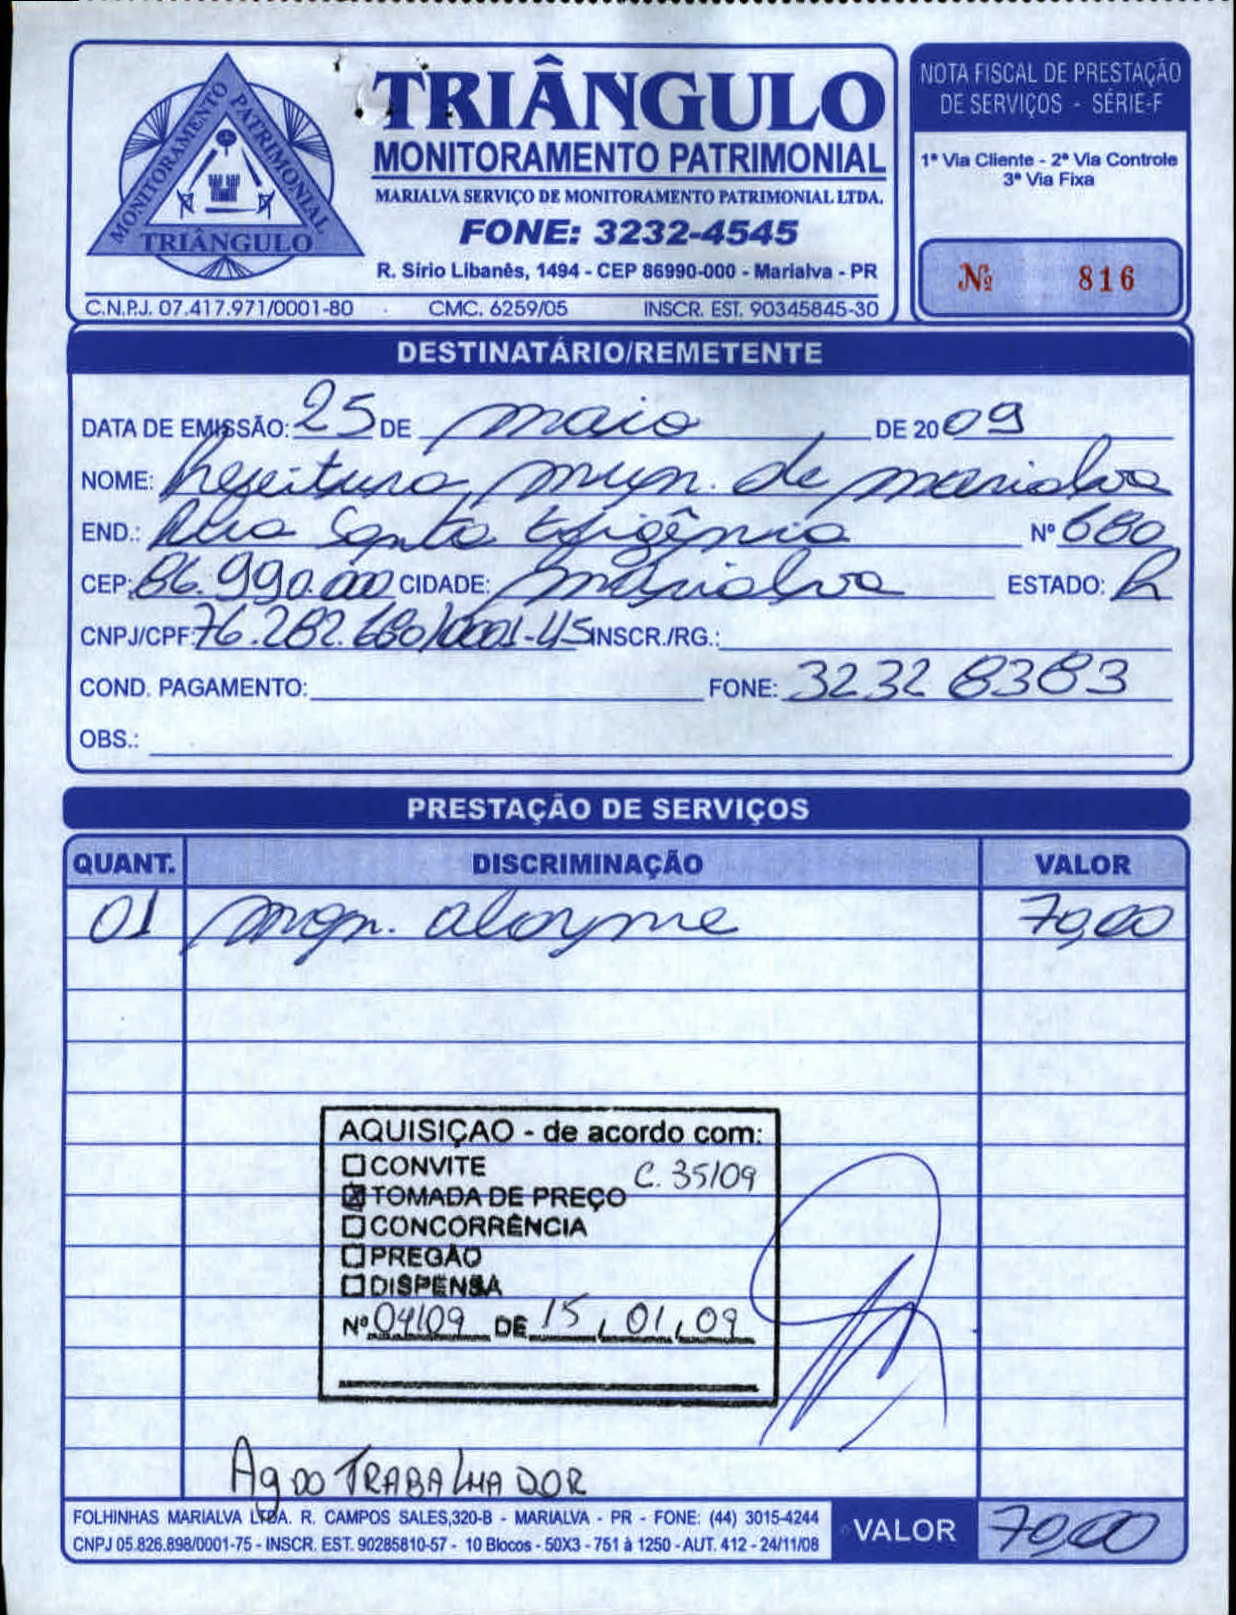 MONITORAMENTO PATRIMONIAL
TRIÂNGULO
TRIÂNGULO
MONITORAMENTO PATRIMONIAL
MARIALVA SERVIÇO DE MONITORAMENTO PATRIMONIAL LTDA.
FONE: 3232-4545
R. Sírio Libanês, 1494 - CEP 86990-000 - Marialva - PR
C.N.P.J. 07.417.971/0001-80 CMC. 6259/05 INSCR. EST. 90345845-30
NOTA FISCAL DE PRESTAÇÃO
DE SERVIÇOS - SÉRIE-F
1ª Via Cliente - 2ª Via Controle
3ª Via Fixa
Nº 816
DESTINATÁRIO/REMETENTE
DATA DE EMISSÃO: 25 DE maio DE 2009
NOME: Prefeitura mun. de marialva
END.: Rua Santa Efigênia Nº 680
CEP: 86.990.000 CIDADE: marialva ESTADO: Pr
CNPJ/CPF: 76.282.680/0001-45 INSCR./RG.:
COND. PAGAMENTO: FONE: 3232 8383
OBS.:
PRESTAÇÃO DE SERVIÇOS
QUANT. DISCRIMINAÇÃO VALOR
01 70,00
AQUISIÇAO - de acordo com:
CONVITE C. 35/09
TOMADA DE PREÇO
CONCORRÊNCIA
PREGÃO
DISPENSA
Nº 04/09 DE 15, 01, 09
Ag DO TRABALHADOR
FOLHINHAS MARIALVA LTDA. R. CAMPOS SALES,320-B - MARIALVA - PR - FONE: (44) 3015-4244
CNPJ 05.826.898/0001-75 - INSCR. EST. 90285810-57 - 10 Blocos - 50X3 - 751 à 1250 - AUT. 412 - 24/11/08
VALOR 70,00